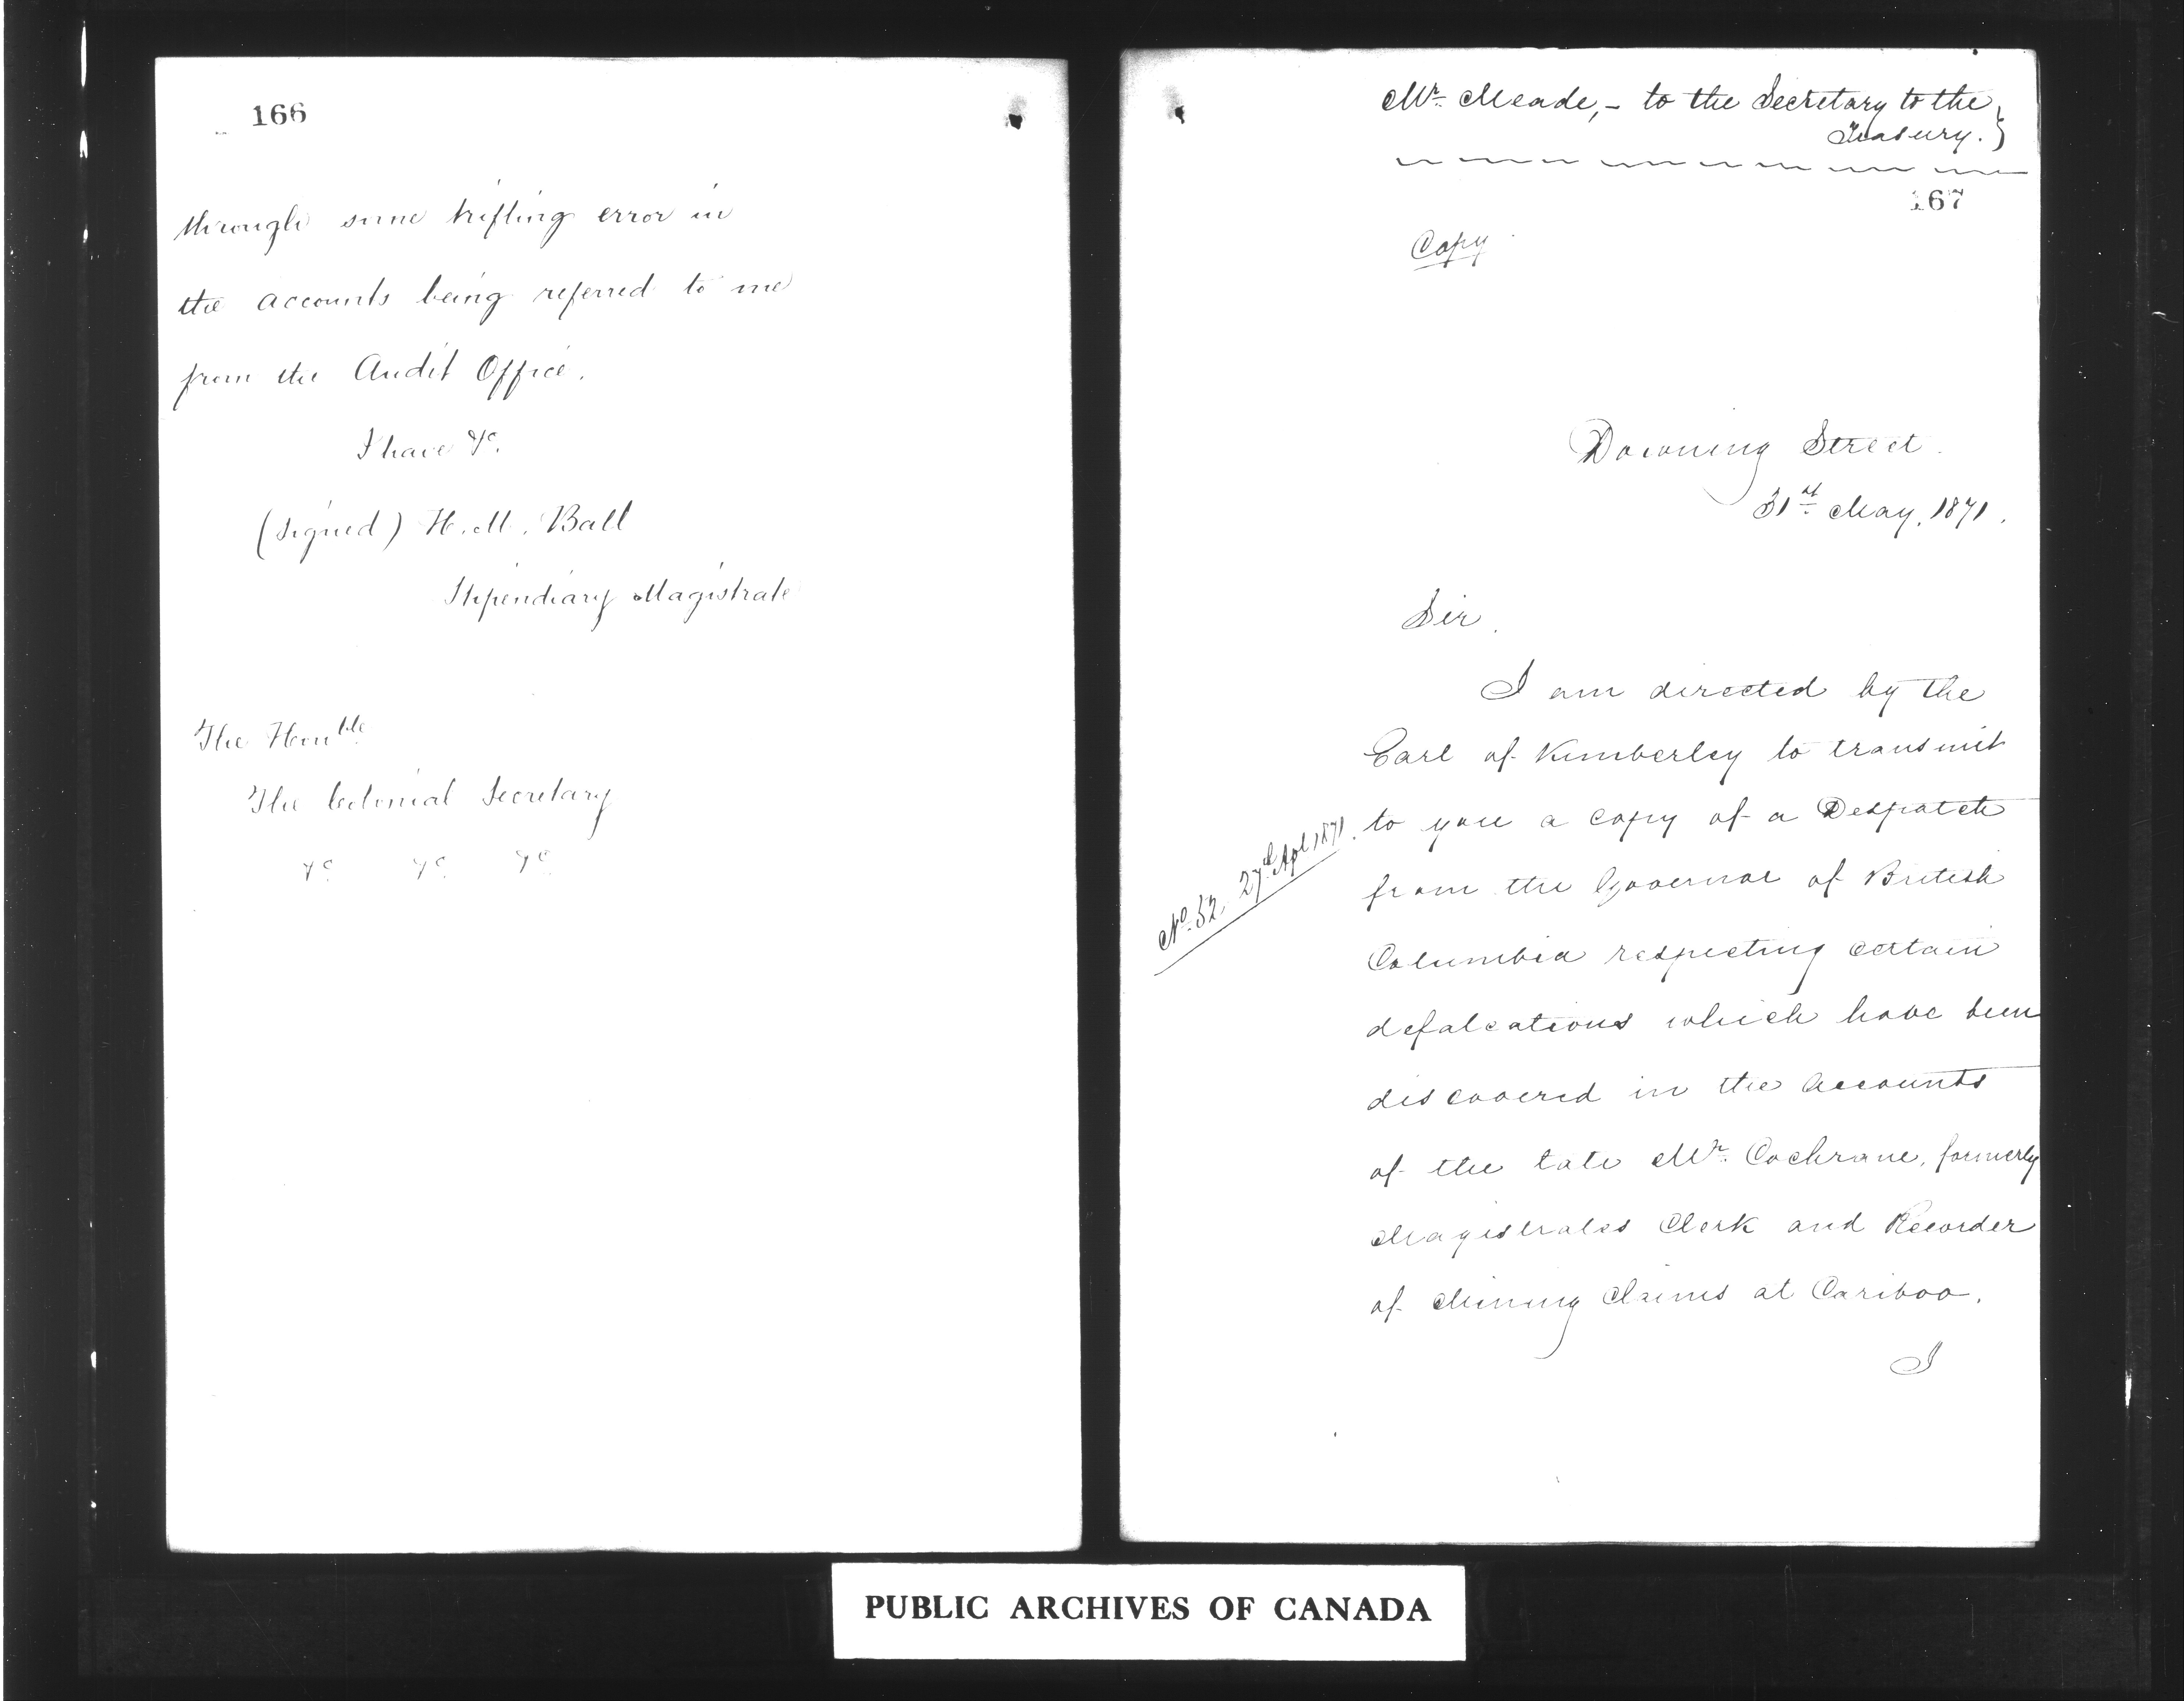 166
through some trifling error in
the accounts being referred to me
from the Audit Office.
I have &c.
(signed) H. M. Ball
Stipendiary Magistrate
The Honble
The Colonial Secretary
&c. &c. &c.
Mr. Meade, - to the Secretary to the
Treasury. }
167
Copy
Downing Street.
31st May, 1871.
Sir,
I am directed by the
Earl of Kimberley to transmit
No. 52, 27th Apl 1871.
to you a copy of a Despatch
from the Governor of British
Columbia respecting certain
defalcations which have been
discovered in the accounts
of the late Mr. Cochrane, formerly
Magistrates Clerk and Recorder
of Mining Claims at Cariboo.
I
PUBLIC ARCHIVES OF CANADA